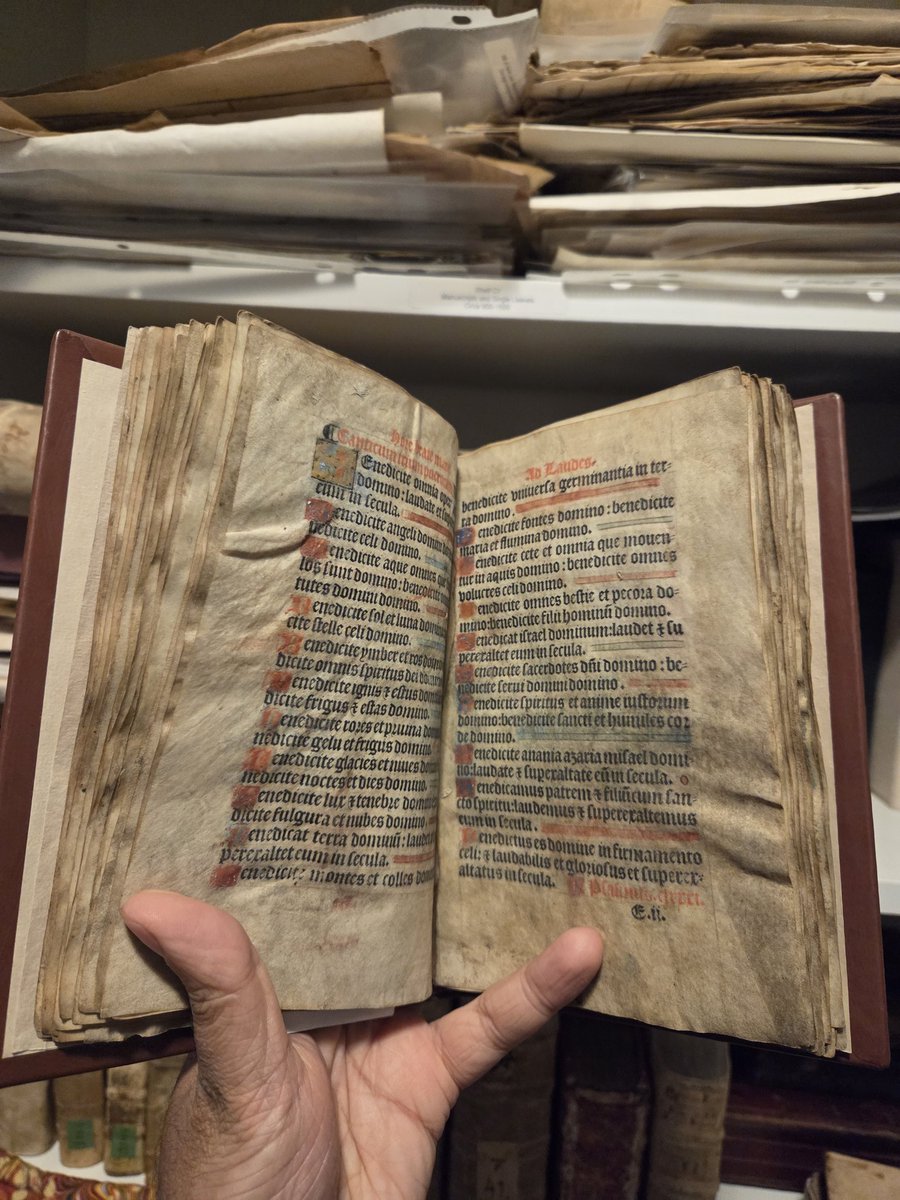 Manuscripts and Single Leaves
Hore beate Marie
Canticum trium
Benedicite omnia oper
domino: laudate et
eum in secula.
Benedicite angeli domini
nedicite celi domino.
Benedicite aque omnes que
los sunt domino: bened
tutes domini domino.
Benedicite sol et luna domi
cite stelle celi domino.
Benedicite ymber et ros domi
dicite omnis spiritus dei domino
Benedicite ignis ⁊ estus domi
dicite frigus ⁊ estas domino.
Benedicite rores et pruina domi
nedicite gelu et frigus domino.
Benedicite glacies et niues domi
nedicite noctes et dies domino.
Benedicite lux ⁊ tenebre domino
dicite fulgura et nubes domino.
Benedicat terra dominū: laudet
perexaltet eum in secula.
Benedicite montes et colles domi
Ad Laudes.
benedicite vniuersa germinantia in ter-
ra domino.
Benedicite fontes domino: benedicite
maria et flumina domino.
Benedicite cete et omnia que mouen-
tur in aquis domino: benedicite omnes
volucres celi domino.
Benedicite omnes bestie et pecora do-
mino: benedicite filii hominū domino.
Benedicat israel dominum: laudet ⁊ su
perexaltet eum in secula.
Benedicite sacerdotes dn̄i domino: be-
nedicite serui domini domino.
Benedicite spiritus et anime iustorum
domino: benedicite sancti et humiles cor
de domino.
Benedicite anania azaria misael domi-
no: laudate ⁊ superaltate eū in secula.
Benedicamus patrem ⁊ filiū cum san-
cto spiritu: laudemus ⁊ superexaltemus
eum in secula.
Benedictus es domine in firmamento
celi: ⁊ laudabilis et gloriosus et superex-
altatus in secula.
E.ii.